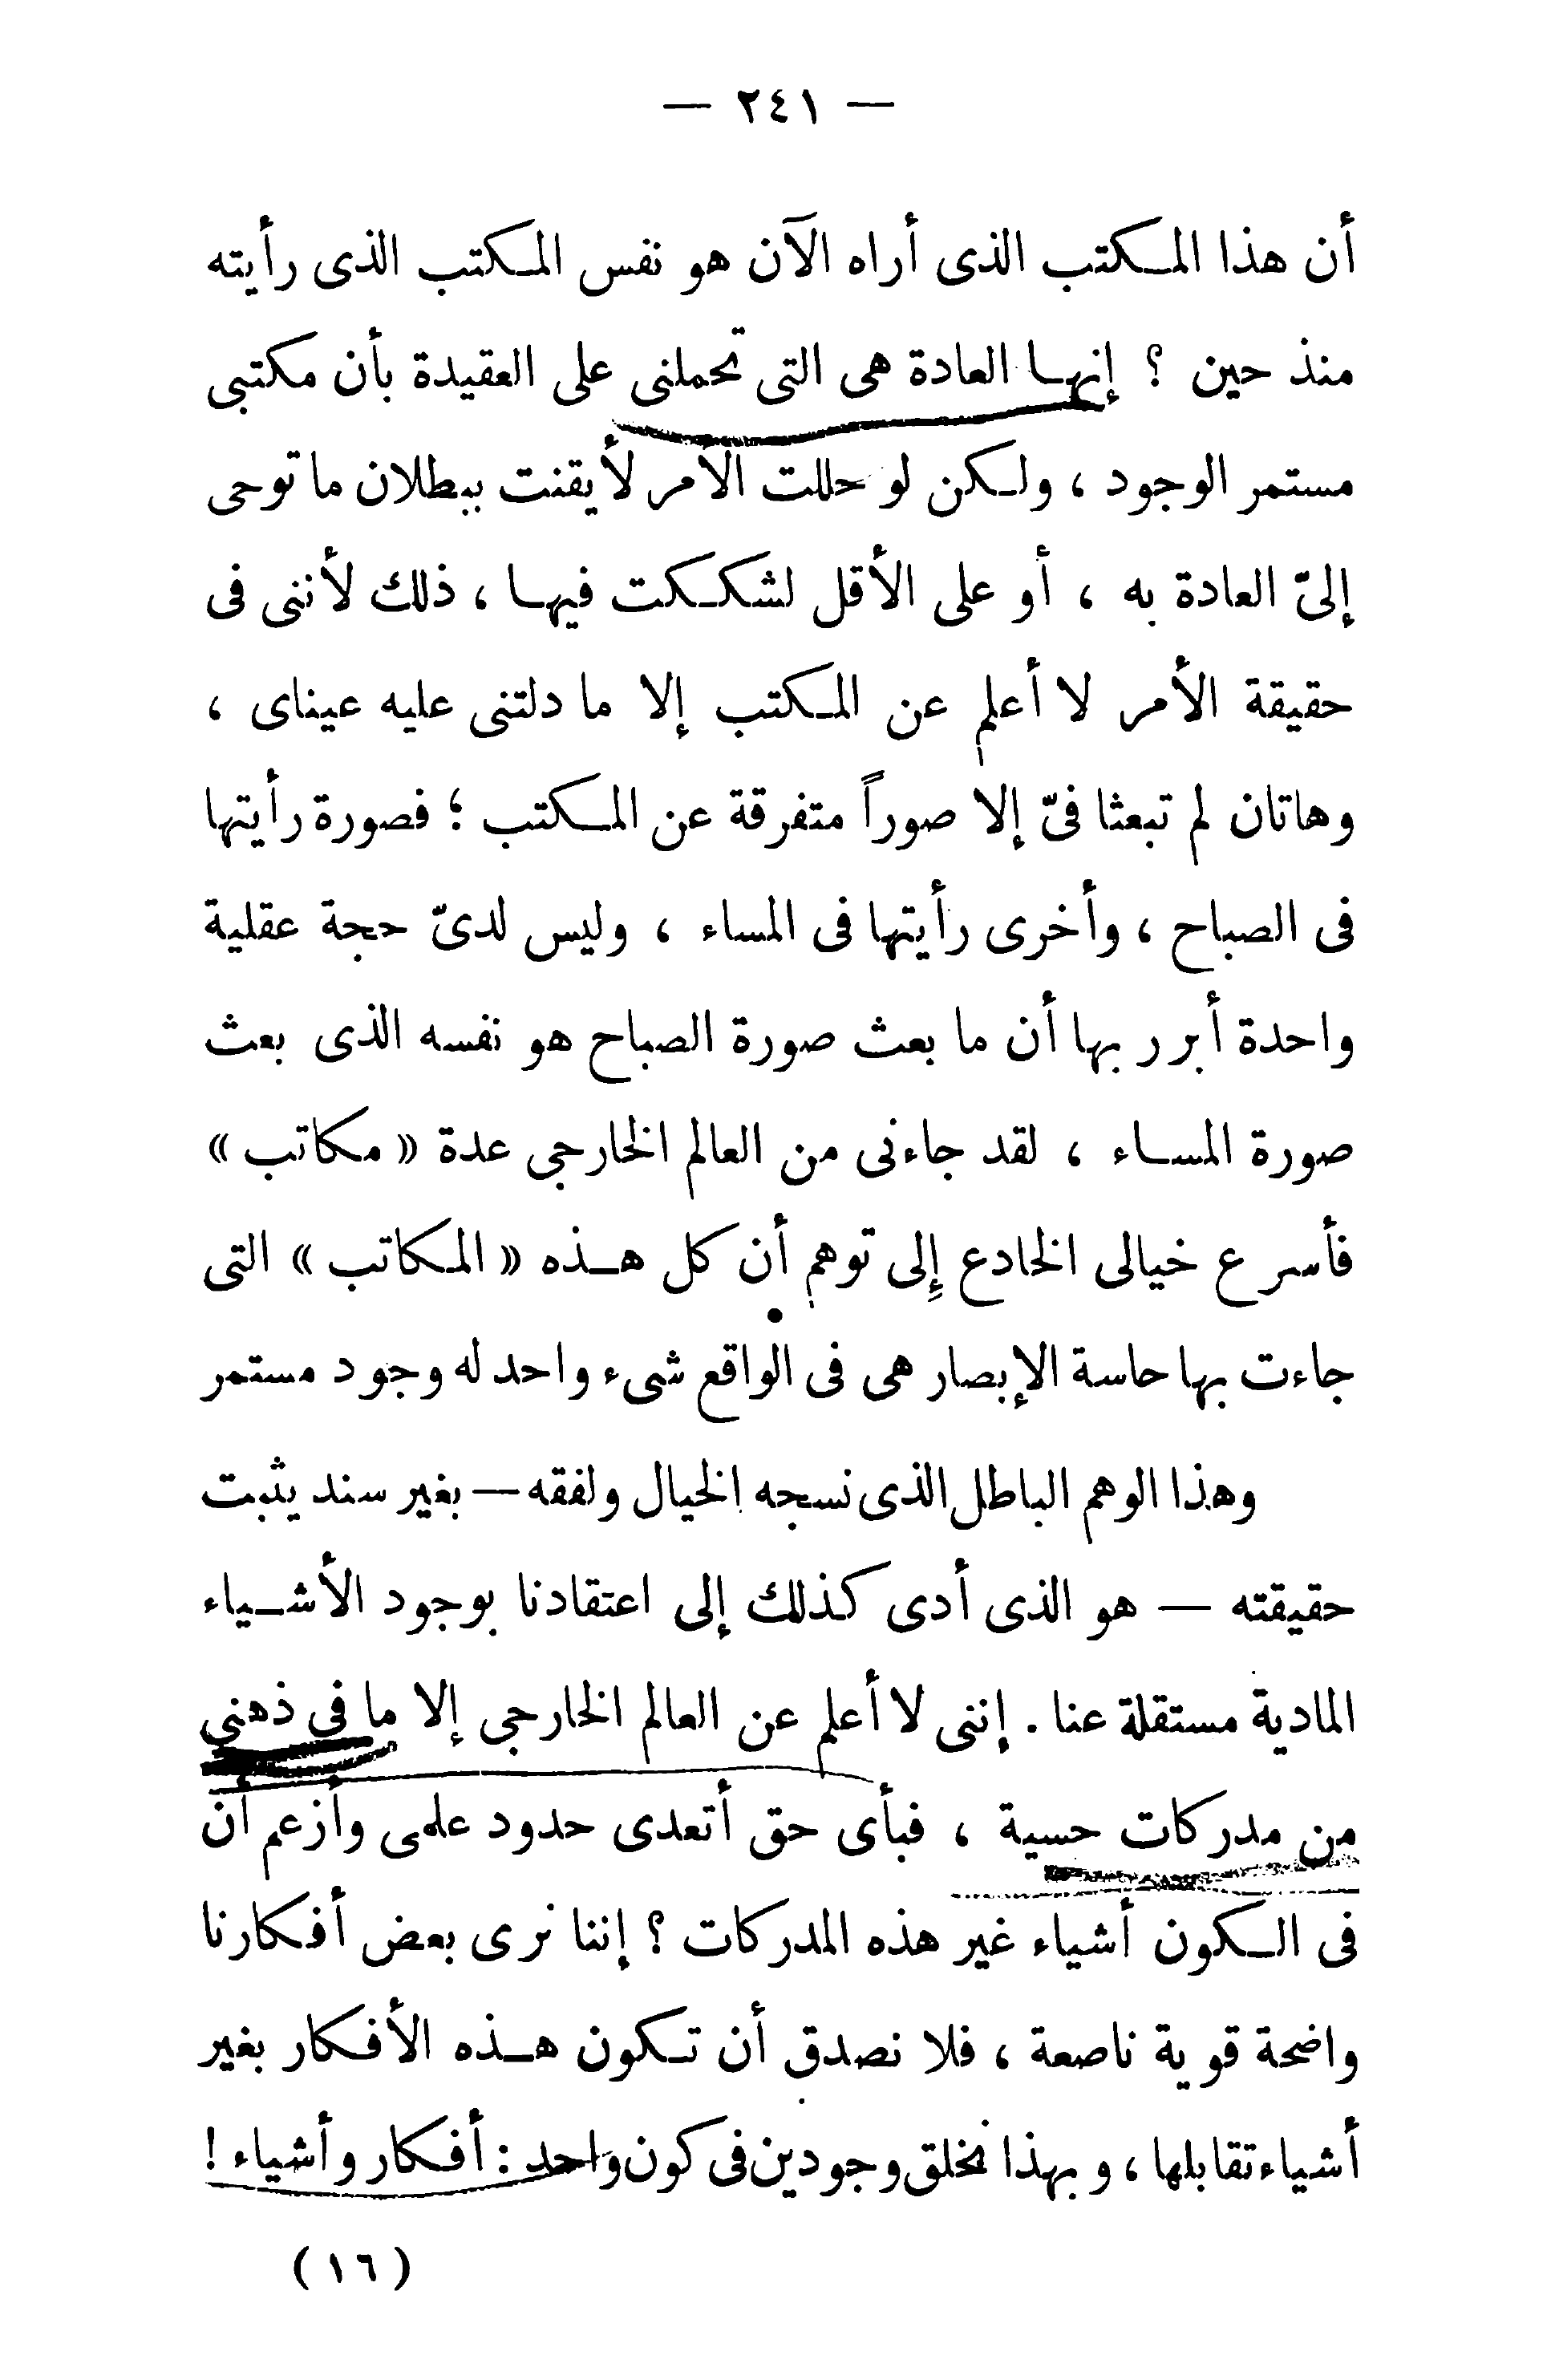 — ٢٤١ —
أن هذا المكتب الذى أراه الآن هو نفس المكتب الذى رأيته
منذ حين ؟ إنها العادة هى التى تحملنى على العقيدة بأن مكتبى
مستمر الوجود ، ولكن لو حللت الأمر لأيقنت ببطلان ما توحى
إلىّ العادة به ، أو على الأقل لشككت فيها ، ذلك لأننى فى
حقيقة الأمر لا أعلم عن المكتب إلا ما دلتنى عليه عيناى ،
وهاتان لم تبعثا فىّ إلا صوراً متفرقة عن المكتب ؛ فصورة رأيتها
فى الصباح ، وأخرى رأيتها فى المساء ، وليس لدىّ حجة عقلية
واحدة أبرر بها أن ما بعث صورة الصباح هو نفسه الذى بعث
صورة المساء ، لقد جاءنى من العالم الخارجى عدة « مكاتب »
فأسرع خيالى الخادع إلى توهم أن كل هذه « المكاتب » التى
جاءت بها حاسة الإبصار هى فى الواقع شىء واحد له وجود مستمر
وهذا الوهم الباطل الذى نسجه الخيال ولفقه — بغير سند يثبت
حقيقته — هو الذى أدى كذلك إلى اعتقادنا بوجود الأشياء
المادية مستقلة عنا . إننى لا أعلم عن العالم الخارجى إلا ما فى ذهنى
من مدركات حسية ، فبأى حق أتعدى حدود علمى وأزعم أن
فى الكون أشياء غير هذه المدركات ؟ إننا نرى بعض أفكارنا
واضحة قوية ناصعة ، فلا نصدق أن تكون هذه الأفكار بغير
أشياء تقابلها ، وبهذا نخلق وجودين فى كون واحد : أفكار وأشياء !
( ١٦ )